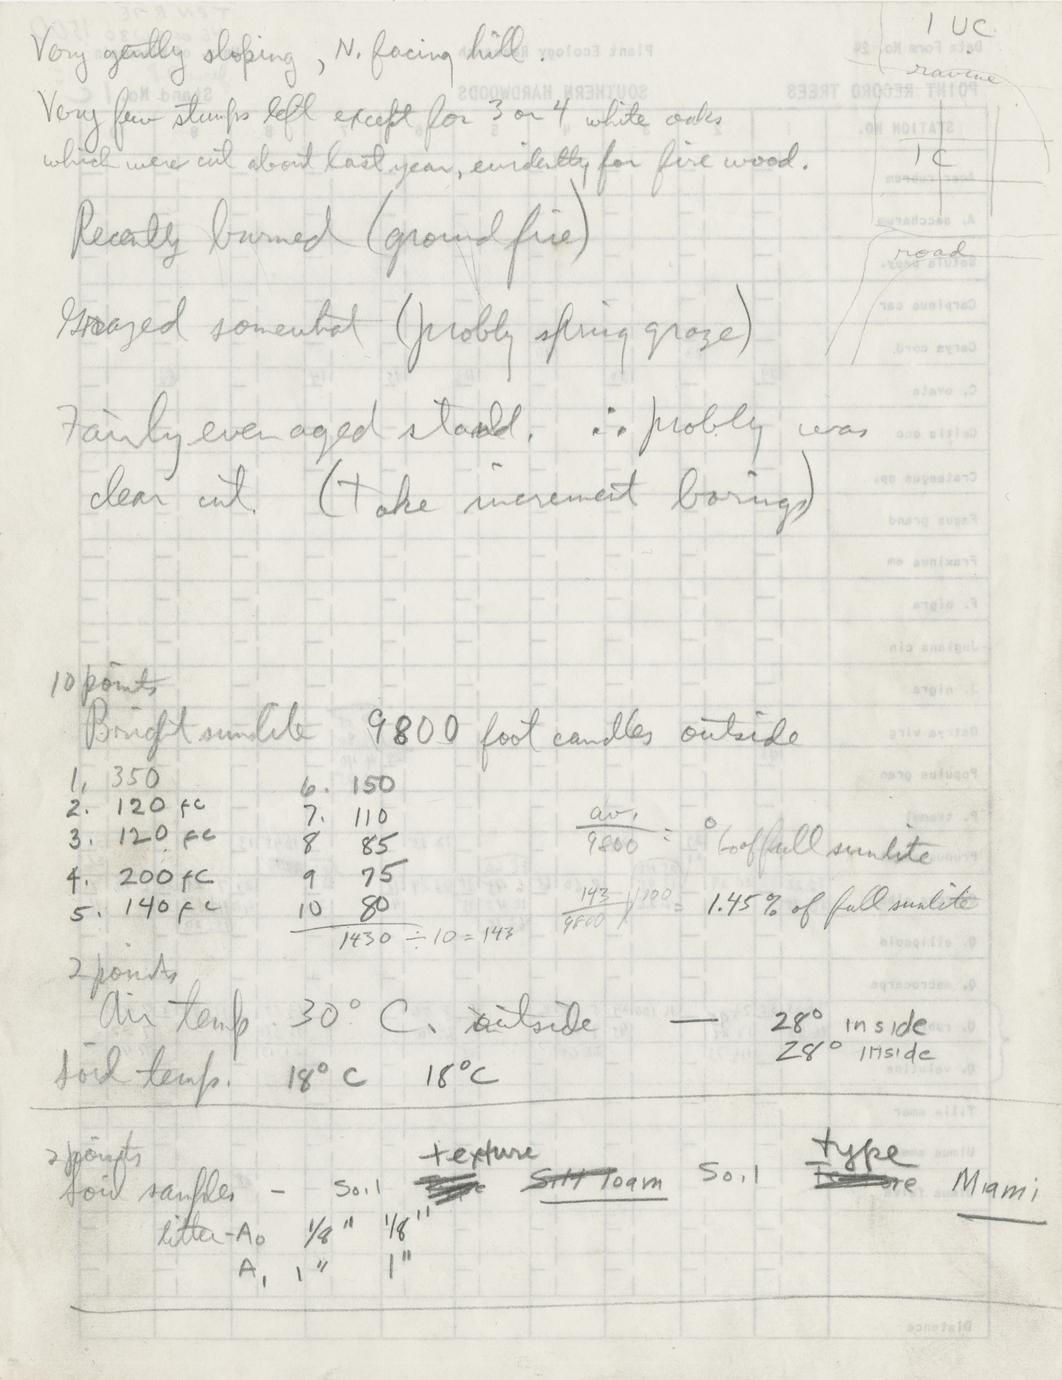 Very gently sloping, N. facing hill.
1 UC
ravine
Very few stumps left except for 3 or 4 white oaks
which were cut about last year, evidently for fire wood.
1 C
road
Recently burned (ground fire)
Grazed somewhat (probly spring graze)
Fairly even aged stand. ∴ probly was
clear cut. (take increment borings)
10 points
Bright sunlite 9800 foot candles outside
1. 350 6. 150
2. 120 fc 7. 110
3. 120 fc 8 85
4. 200 fc 9 75
5. 140 fc 10 80
1430 ÷ 10 = 143
av. / 9800 = % of full sunlite
143 / 9800 | 100 = 1.45% of full sunlite
2 points
Air temp 30° C. outside — 28° inside
28° inside
Soil temp. 18° C 18° C
2 points
texture type
Soil samples - Soil Silt loam Soil Miami
litter - A0 1/8" 1/8"
A1 1" 1"
Plant Ecology
SOUTHERN HARDWOODS
POINT RECORD TREES
Data Form No. 24
Stand No.
STATION NO.
Acer rubrum
A. saccharum
Carpinus car
Carya cord
C. ovata
Celtis occ
Crataegus sp.
Fagus grand
Fraxinus am
F. nigra
Juglans cin
J. nigra
Ostrya virg
Populus gran
Q. ellipsoid
Q. macrocarpa
Q. velutina
Tilia amer
Distance